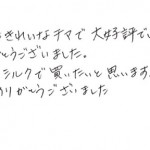 きれいなチマで大好評で
とうございました。
シルクで買いたいと思います
りがとうございました